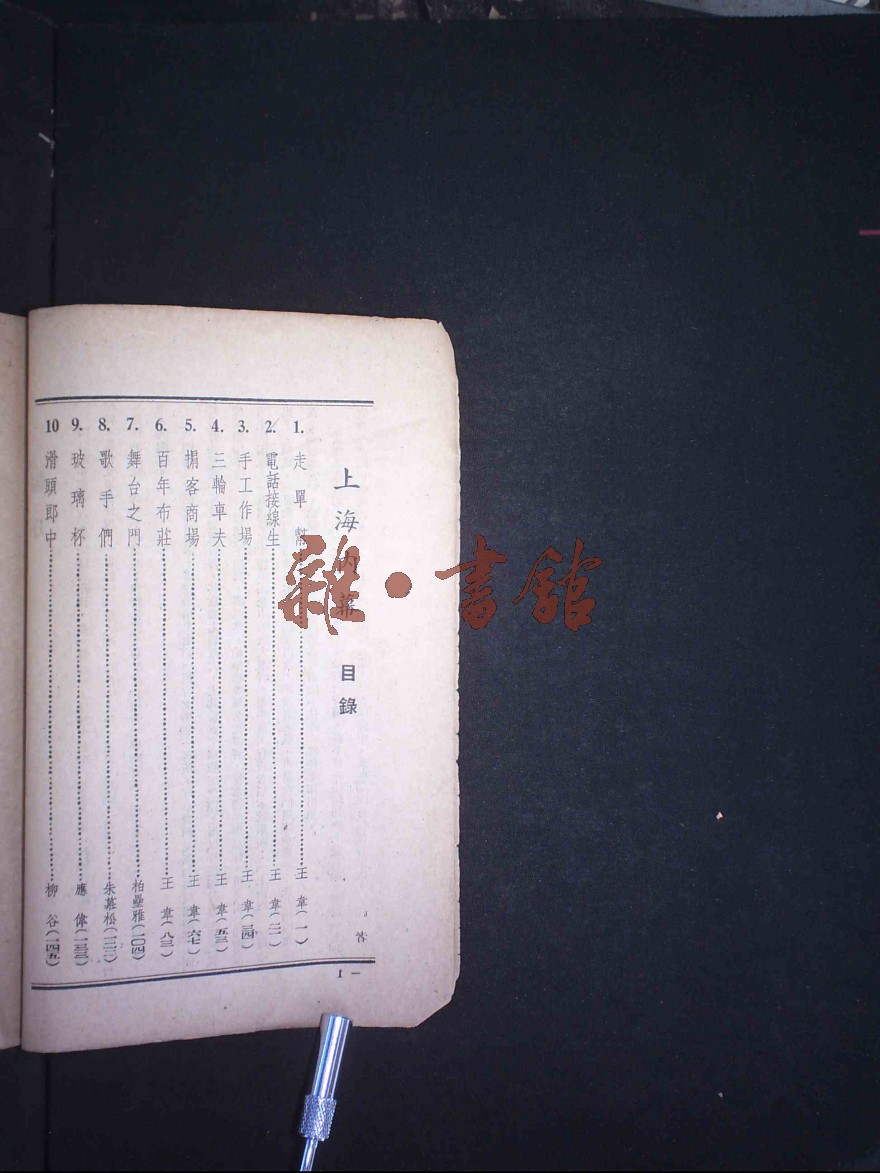 上海內幕　目錄
1. 走單幫……王韋（一）
2. 電話接線生……王韋（二一）
3. 手工作場……王韋（三四）
4. 三輪車夫……王韋（五三）
5. 掮客商場……王韋（六七）
6. 百年布莊……王韋（八三）
7. 舞台之門……柏壘雅（一〇四）
8. 歌手們……朱慕松（一二二）
9. 玻璃杯……應偉（一三三）
10 滑頭郎中……柳谷（一四五）
1 —
雜·書館